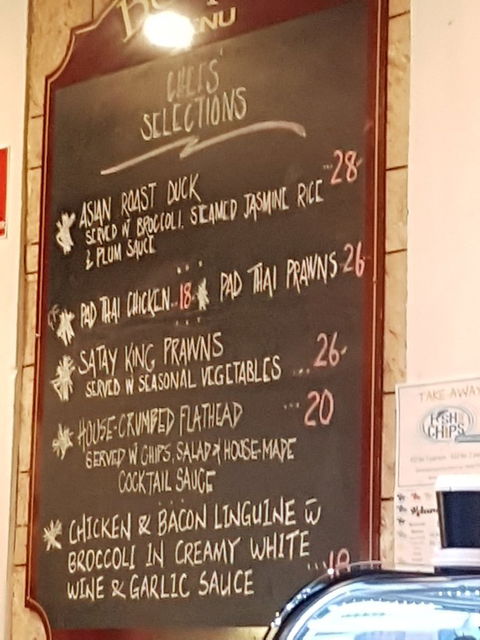 MENU
CHEFS'
SELECTIONS
ASIAN ROAST DUCK ...28-
SERVED W BROCCOLI, STEAMED JASMINE RICE
& PLUM SAUCE
PAD THAI CHICKEN..18 PAD THAI PRAWNS-26
SATAY KING PRAWNS ...26-
SERVED W SEASONAL VEGETABLES
HOUSE-CRUMBED FLATHEAD ...20
SERVED W CHIPS, SALAD & HOUSE-MADE
COCKTAIL SAUCE
CHICKEN & BACON LINGUINE W
BROCCOLI IN CREAMY WHITE
WINE & GARLIC SAUCE ...18
TAKE-AWAY
FISH
CHIPS